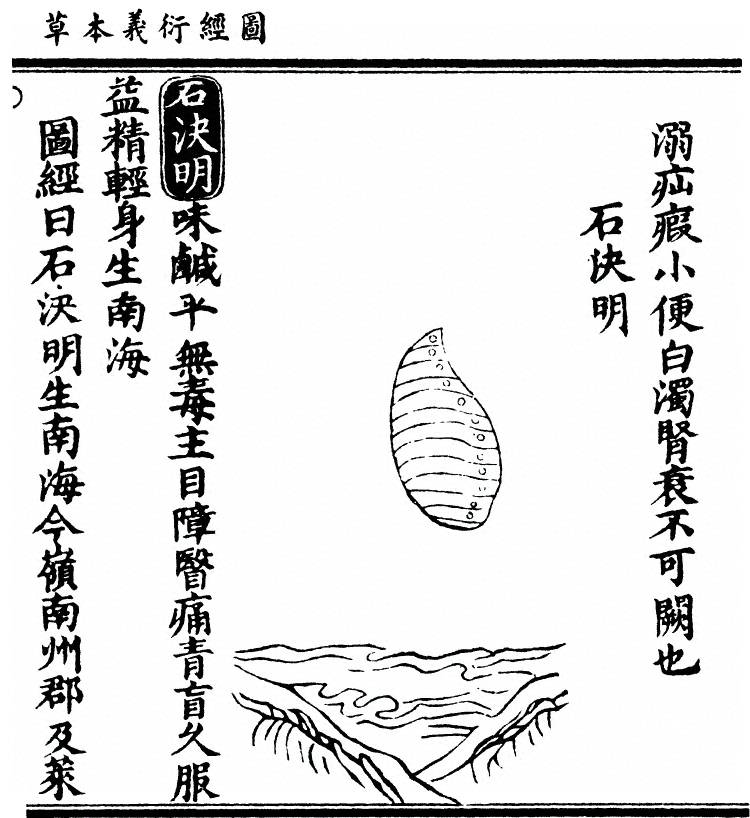 圖經衍義本草
溺疝瘕小便白濁腎衰不可闕也
石決明
石決明味鹹平無毒主目障瞖痛青盲久服
益精輕身生南海
圖經曰石決明生南海今嶺南州郡及萊